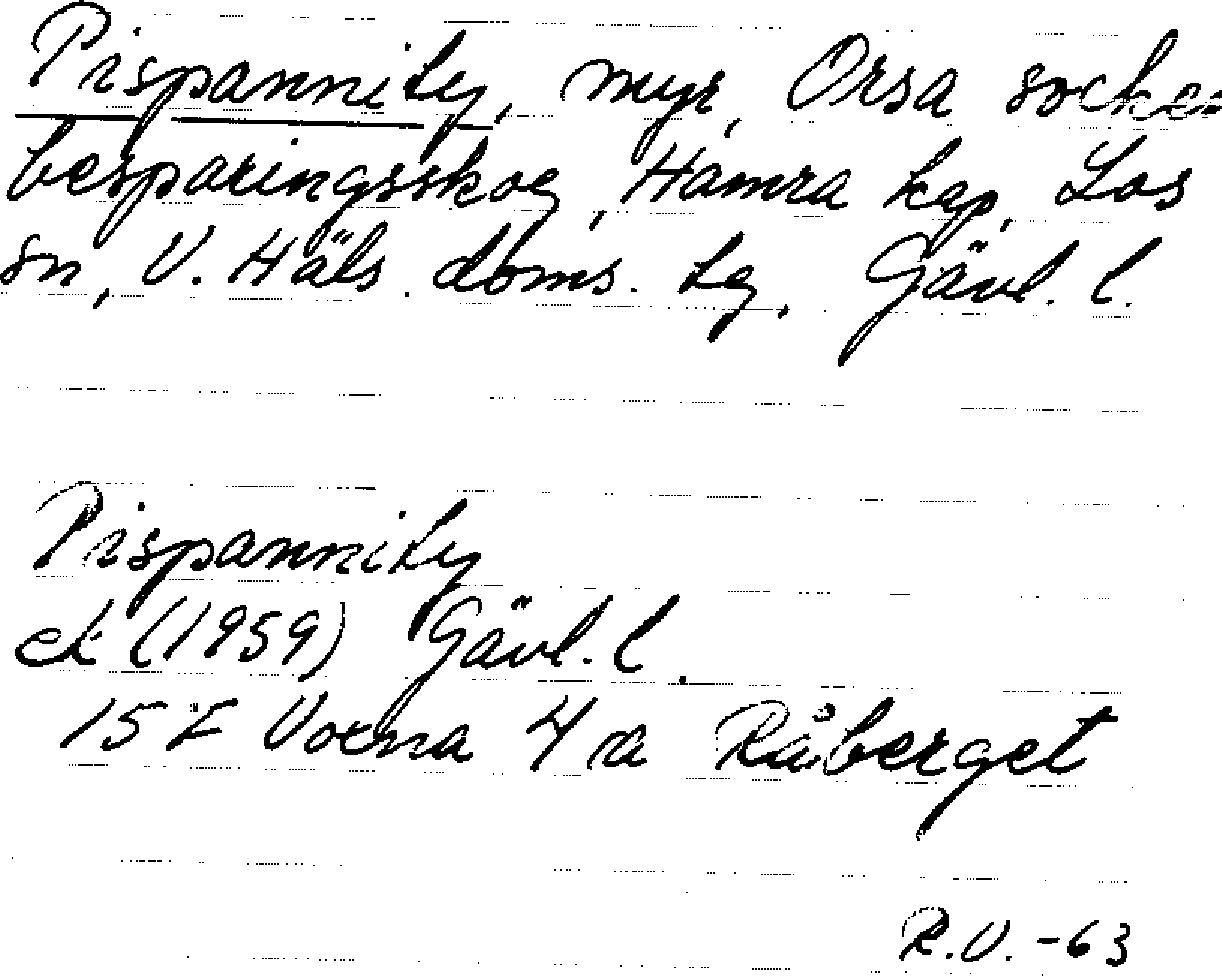 Pispannity, myr, Orsa socken
besparingsskog, Hamra kap, Los
sn, V. Häls. doms. tg, Gävl. l.
Pispannity
ek (1959) Gävl. l.
15 F Voxna 4 a Råberget
R.V. -63